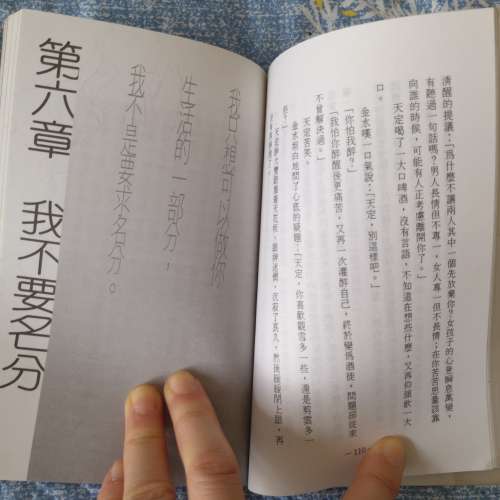 清醒的提議:「爲什麼不讓兩人其中一個先放棄你?女孩子的心意瞬息萬變,
有聽過一句話嗎?男人長情但不專一,女人專一但不長情;在你苦苦思量該靠
向誰的時候,可能有人正考慮離開你了。」
天定喝了一大口啤酒,沒有言語,不知道在想些什麼,又再仰頭飲一大
口。
金水嘆一口氣說:「天定,別這樣吧。」
「你怕我醉?」
「我怕你醉醒後更痛苦,又再一次灌醉自己,終於變爲酒徒,問題卻從來
不曾解決過。」
天定苦笑。
金水坦白地問了心底的疑題:「天定,你喜歡觀雪多一些,還是剪雲多一
些?」
—110—
我只想可以做你
生活的一部分,
我不是要求名分。
第六章 我不要名分